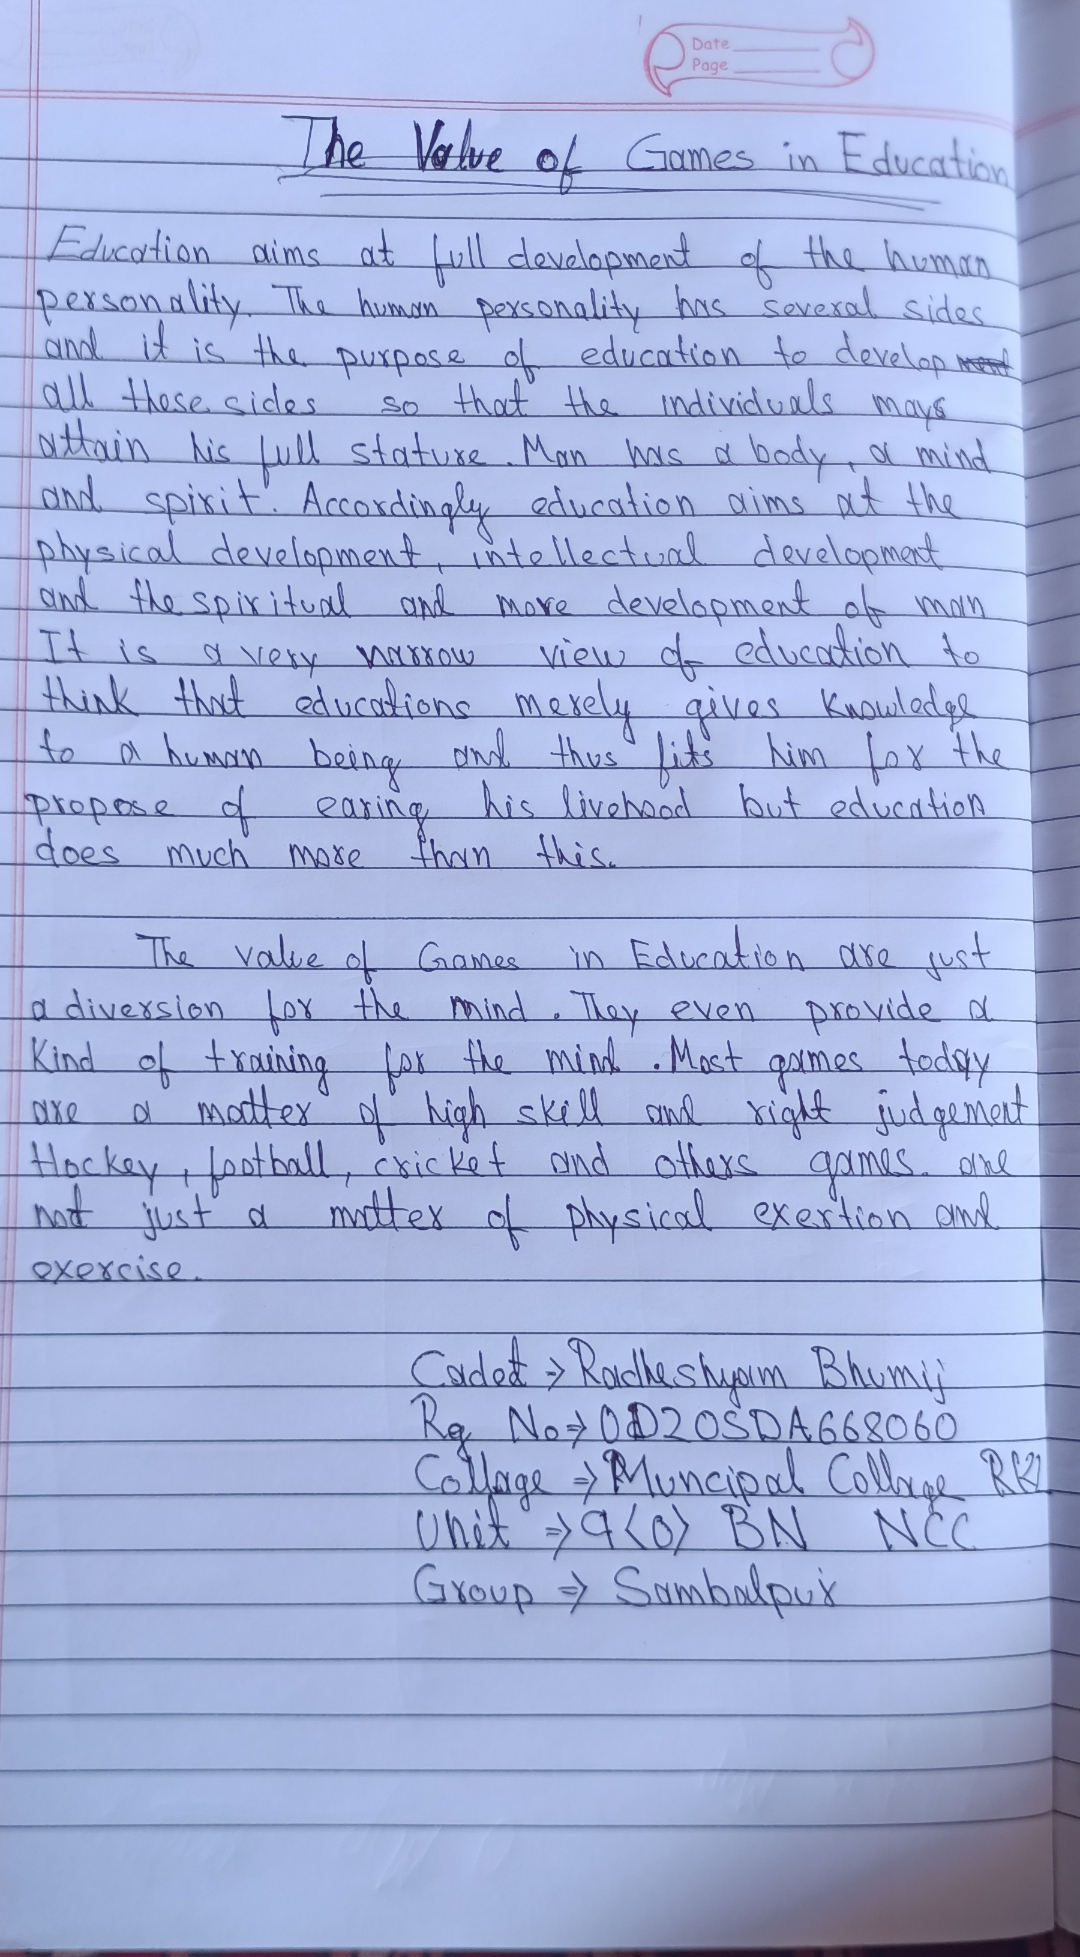 Date
Page
The Value of Games in Education
Education aims at full development of the human
personality. The human personality has several sides
and it is the purpose of education to develop
all these sides so that the individuals mays
attain his full stature. Man has a body, a mind
and spirit. Accordingly education aims at the
physical development, intellectual development
and the spiritual and more development of man
It is a very narrow view of education to
think that educations merely gives Knowledge
to a human being and thus fits him for the
propose of earing his livehood but education
does much more than this.
The value of Games in Education are just
a diversion for the mind. They even provide a
Kind of training for the mind. Most games today
are a matter of high skill and right judgement
Hockey, football, cricket and others games. are
not just a matter of physical exertion and
exercise.
Cadet ⇒ Radheshyam Bhumij
Rg No ⇒ OD20SDA668060
Collage ⇒ Muncipal Collage RKL
Unit ⇒ 9<0> BN NCC
Group ⇒ Sambalpur